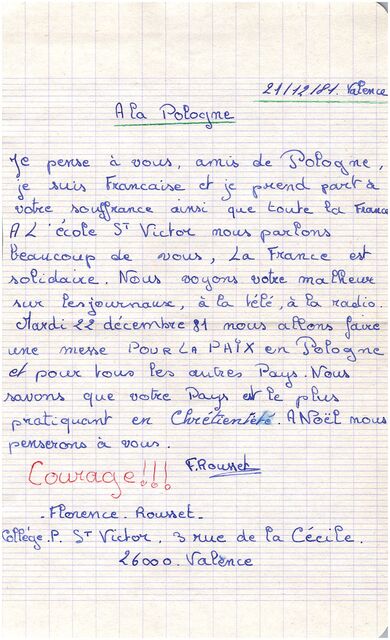 21/12/81. Valence
A la Pologne
Je pense à vous, amis de Pologne,
je suis Francaise et je prend part à
votre souffrance ainsi que toute la France
A L'école St Victor nous parlons
beaucoup de vous, La France est
solidaire. Nous voyons votre malheur
sur les journaux, à la télé, à la radio.
Mardi 22 décembre 81 nous allons faire
une messe POUR LA PAÏX en Pologne
et pour tous les autres Pays. Nous
savons que votre Pays est le plus
pratiquant en Chrétienteté. A Noël nous
penserons à vous.
Courage!!! F. Rousset
- Florence. Rousset -
Collège. P. St Victor. 3 rue de la Cécile.
26000. Valence